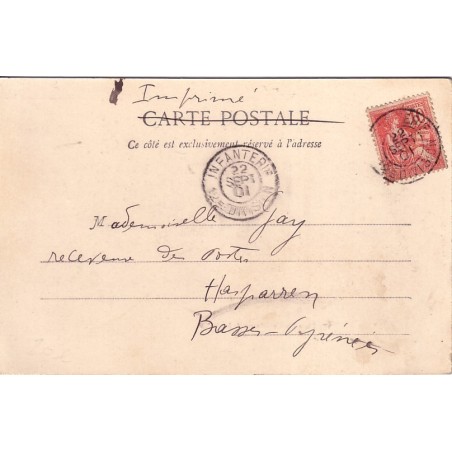 Imprimé
CARTE POSTALE
Ce côté est exclusivement réservé à l'adresse
INFANTERIE
22
SEPT
01
22
SEPT
01
Mademoiselle Gay
receveuse des Postes
Hasparren
Basses-Pyrénées